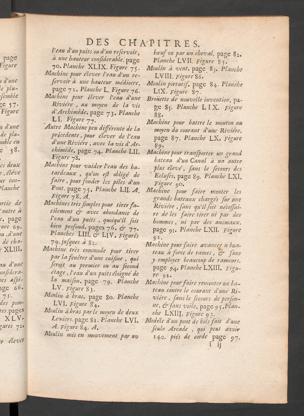 DES CHAPITRES.
l'eau d'un puits ou d'un reservoir,
à une hauteur considerable. page
70. Planche XLIX. Figure 75.
Machine pour élever l'eau d'un re-
servoir à une hauteur médiocre,
page 72. Planche L. Figure 76.
Machine pour élever l'eau d'une
Riviére, au moyen de la vis
d'Archiméde, page 73. Planche
LI. Figure 77.
Autre Machine peu differente de la
précedente, pour élever de l'eau
d'une Riviére, avec la vis d'Ar-
chiméde, page 74. Planche LII.
Figure 78.
Machine pour vuider l'eau des ba-
tardeaux, qu'on est obligé de
faire, pour fonder les piles d'un
Pont, page 75. Planche LII. A.
Figure 78. A.
Machines très simples pour tirer fa-
cilement & avec abondance de
l'eau d'un puits, quoiqu'il soit
bien profond, pages 76, & 77.
Planches LIII, & LIV. Figures
79. jusques à 82.
Machine très commode pour tirer
par la fenêtre d'une cuisine, qui
seroit au premier ou au second
étage, l'eau d'un puits éloigné de
la maison, page 79. Planche
LV. Figure 83.
Moulin à bras, page 80. Planche
LVI. Figure 84.
Moulin à bras par le moyen de deux
Leviers, page 81. Planche LVI.
A. Figure 84. A.
Moulin mis en mouvement par un
bœuf ou par un cheval, page 82.
Planche LVII. Figure 85.
Moulin à vent, page 83. Planche
LVIII. Figure 86.
Moulin portatif, page 84. Planche
LIX. Figure 87.
Brouette de nouvelle invention, pa-
ge 85. Planche LIX. Figure
88.
Machine pour battre le mouton au
moyen du courant d'une Riviére,
page 87. Planche LX. Figure
89.
Machine pour transporter un grand
bateau d'un Canal à un autre
plus élevé, sans le secours des
Ecluses, page 89. Planche LXI.
Figure 90.
Machine pour faire monter les
grands bateaux chargés sur une
Riviére, sans qu'il soit nécessai-
re de les faire tirer ni par des
hommes, ni par des animaux,
page 91. Planche LXII. Figure
91.
Machine pour faire avancer un ba-
teau à force de rames, & sans
y employer beaucoup de rameurs,
page 94. Planche LXIII. Figu-
re 92.
Machine pour faire remonter un ba-
teau contre le courant d'une Ri-
viére, sans le secours de person-
ne, & sans voile, page 95. Plan-
che LXIII. Figure 93.
Modéle d'un pont de bois fait d'une
seule Arcade, qui peut avoir
140. piés de corde page 97.